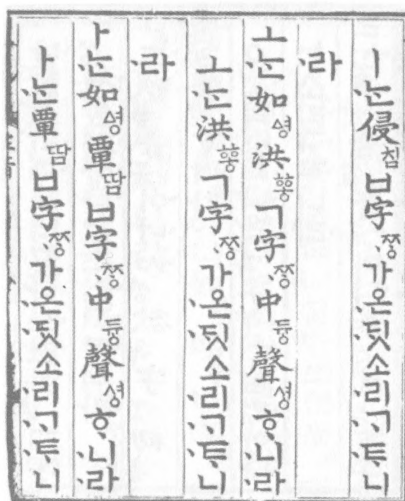 ㅣ·ᄂᆞᆫ侵침ㅂ字·ᄍᆞᆼ가·온·ᄃᆡᆺ소·리·ᄀᆞ·ᄐᆞ·니
·라
ㅗ·ᄂᆞᆫ如ᅀᅧᆼ洪ᅘᅩᇰㄱ字·ᄍᆞᆼ中듀ᇰ聲셔ᇰᄒᆞ·니·라
ㅗ·ᄂᆞᆫ洪ᅘᅩᇰㄱ字·ᄍᆞᆼ가·온·ᄃᆡᆺ소·리·ᄀᆞ·ᄐᆞ·니
·라
ㅏ·ᄂᆞᆫ如ᅀᅧᆼ覃땀ㅂ字·ᄍᆞᆼ中듀ᇰ聲셔ᇰᄒᆞ·니·라
ㅏ·ᄂᆞᆫ覃땀ㅂ字·ᄍᆞᆼ가·온·ᄃᆡᆺ소·리·ᄀᆞ·ᄐᆞ·니